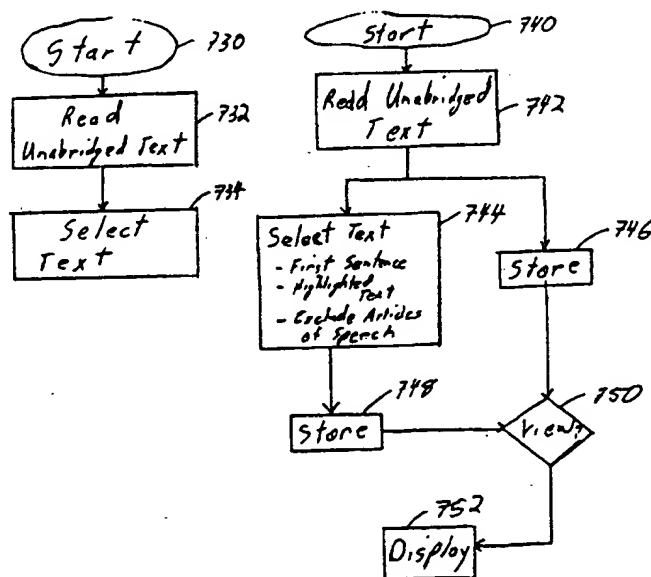 Start
730
Read
Unabridged Text
732
Select
Text
734
Start
740
Read Unabridged
Text
742
Select Text
- First Sentence
- Highlighted
Text
- Exclude Articles
of Speech
744
Store
746
Store
748
View?
750
752
Display